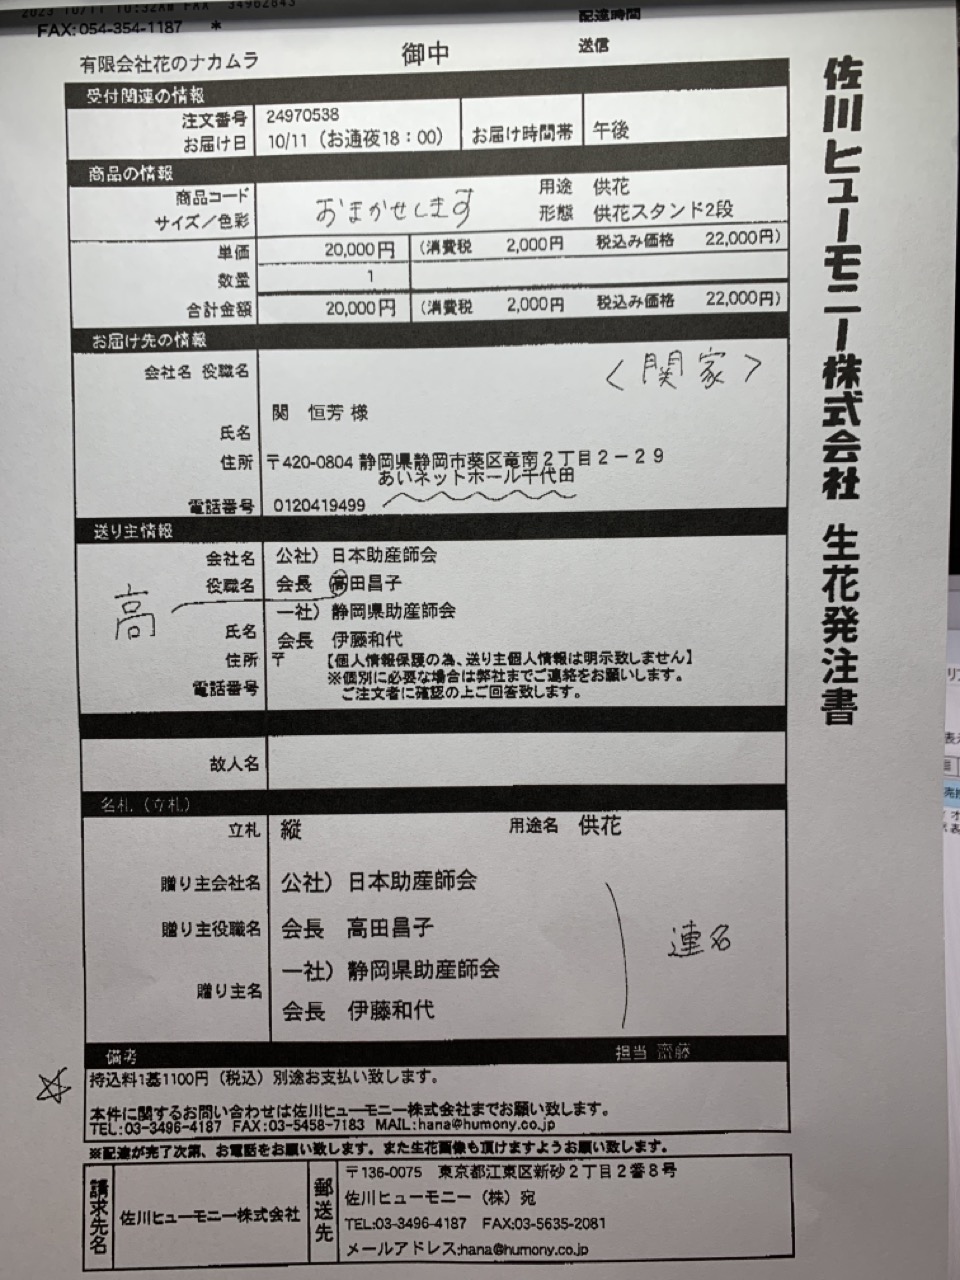 2023 10/11 10:32AM FAX 34962843
FAX:054-354-1187 *
配達時間
有限会社花のナカムラ 御中 送信
佐川ヒューモニー株式会社 生花発注書
受付関連の情報
注文番号 24970538
お届け日 10/11（お通夜18：00） お届け時間帯 午後
商品の情報
商品コード 用途 供花
サイズ／色彩 おまかせします 形態 供花スタンド2段
単価 20,000円 （消費税 2,000円 税込み価格 22,000円）
数量 1
合計金額 20,000円 （消費税 2,000円 税込み価格 22,000円）
お届け先の情報
会社名 役職名 〈関家〉
関 恒芳 様
氏名
住所 〒420-0804 静岡県静岡市葵区竜南２丁目２－２９
あいネットホール千代田
電話番号 0120419499
送り主情報
会社名 公社）日本助産師会
役職名 会長 高田昌子
高
一社）静岡県助産師会
氏名
会長 伊藤和代
住所 〒 【個人情報保護の為、送り主個人情報は明示致しません】
※個別に必要な場合は弊社までご連絡をお願いします。
電話番号 ご注文者に確認の上ご回答致します。
故人名
名札（立札）
立札 縦 用途名 供花
贈り主会社名 公社）日本助産師会
贈り主役職名 会長 高田昌子
連名
一社）静岡県助産師会
贈り主名
会長 伊藤和代
備考 担当 齋藤
持込料1基1100円（税込）別途お支払い致します。
本件に関するお問い合わせは佐川ヒューモニー株式会社までお願い致します。
TEL:03-3496-4187 FAX:03-5458-7183 MAIL:hana@humony.co.jp
※配達が完了次第、お電話をお願い致します。また生花画像も頂けますようお願い致します。
請求先名 佐川ヒューモニー株式会社 郵送先
〒136-0075 東京都江東区新砂２丁目２番８号
佐川ヒューモニー（株）宛
TEL:03-3496-4187 FAX:03-5635-2081
メールアドレス:hana@humony.co.jp